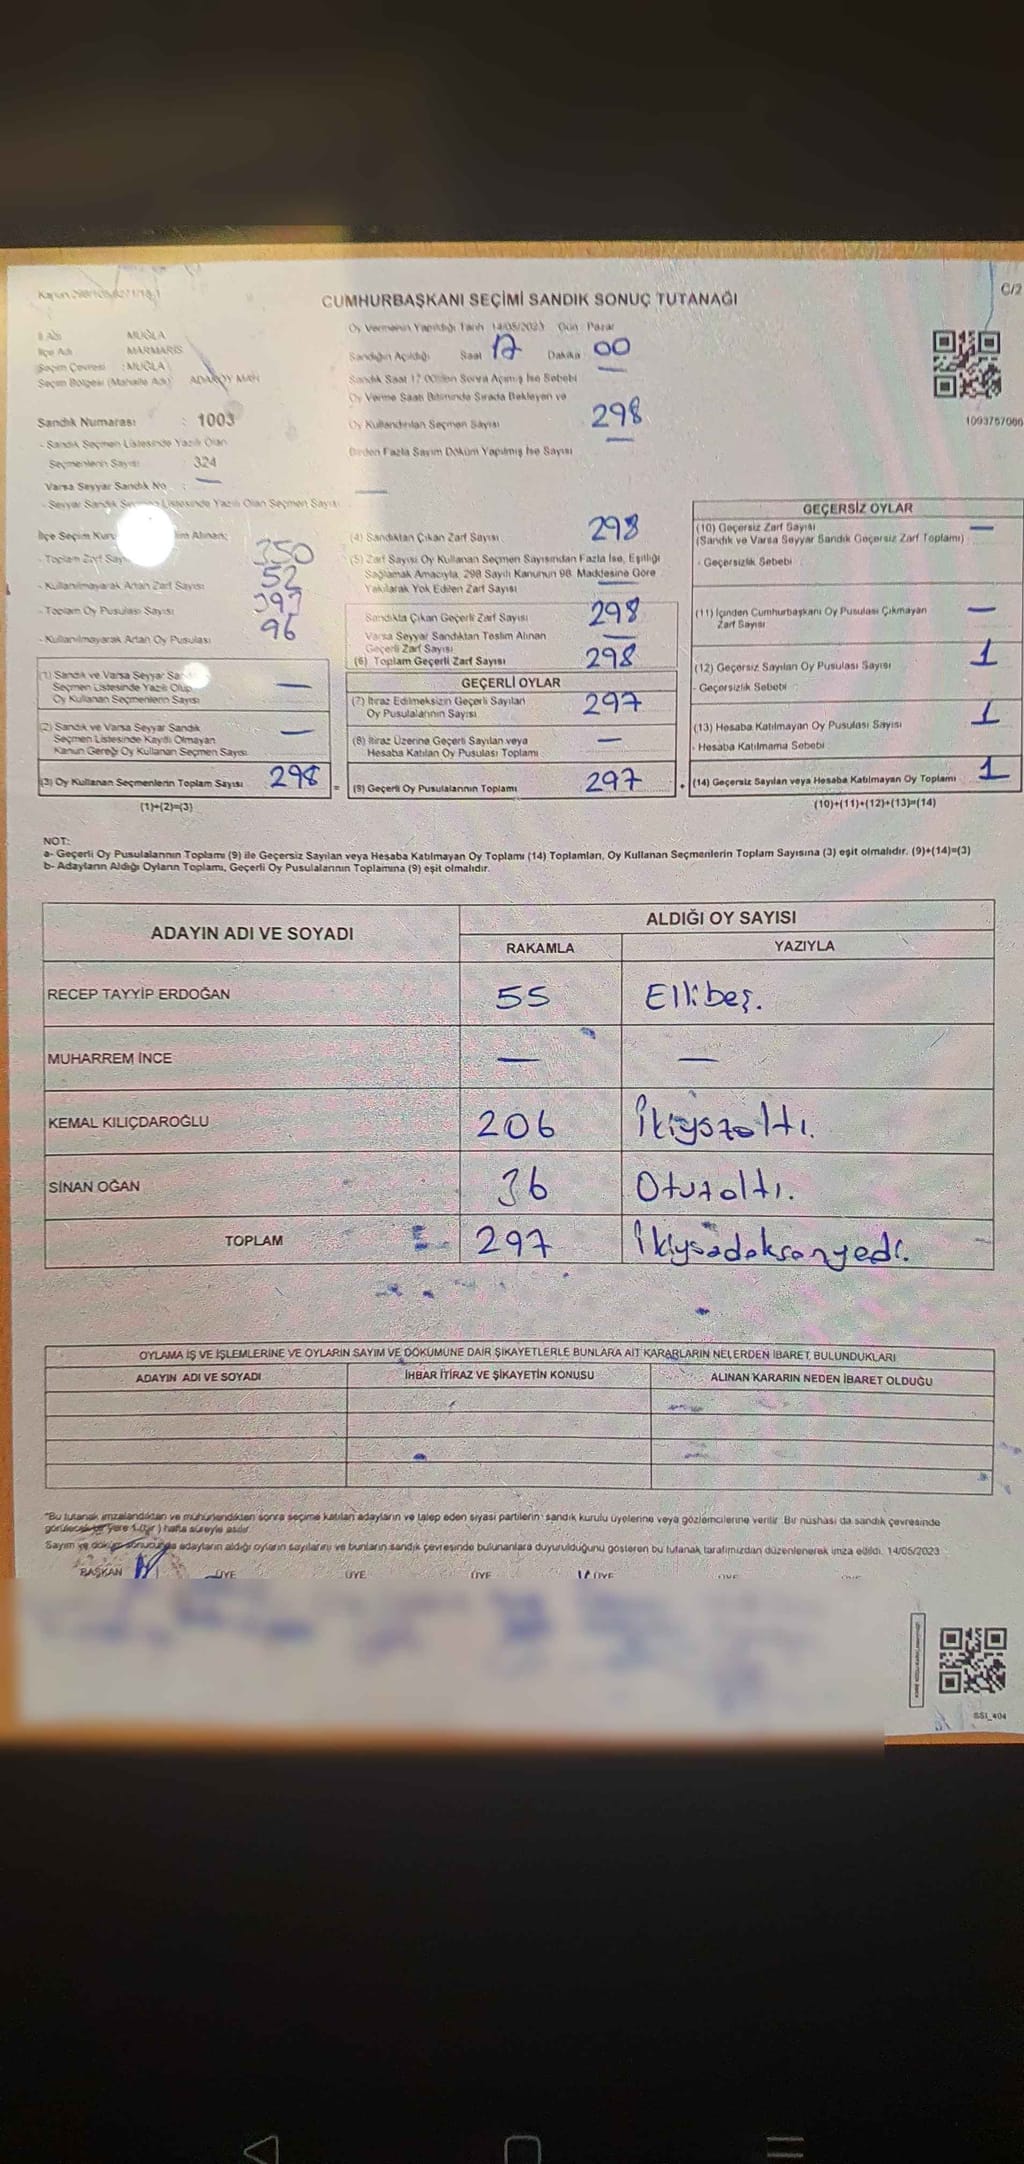 Kanun 298/105,6271/18-1
CUMHURBAŞKANI SEÇİMİ SANDIK SONUÇ TUTANAĞI
C/2
İl Adı MUĞLA
İlçe Adı MARMARİS
Seçim Çevresi : MUĞLA
Seçim Bölgesi (Mahalle Adı) ADAKÖY MAH
Sandık Numarası : 1003
- Sandık Seçmen Listesinde Yazılı Olan
Seçmenlerin Sayısı 324
Varsa Seyyar Sandık No : —
- Seyyar Sandık Seçmen Listesinde Yazılı Olan Seçmen Sayısı —
Oy Vermenin Yapıldığı Tarih 14/05/2023 Gün : Pazar
Sandığın Açıldığı Saat 17 Dakika 00
Sandık Saat 17.00'den Sonra Açımış İse Sebebi —
Oy Verme Saati Bitiminde Sırada Bekleyen ve
Oy Kullandırılan Seçmen Sayısı 298
Birden Fazla Sayım Döküm Yapılmış İse Sayısı —
1093757066
İlçe Seçim Kuru lim Alınan;
- Toplam Zarf Sayı 350
- Kullanılmayarak Artan Zarf Sayısı 52
- Toplam Oy Pusulası Sayısı 397
- Kullanılmayarak Artan Oy Pusulası 96
(1) Sandık ve Varsa Seyyar San
Seçmen Listesinde Yazılı Olup
Oy Kullanan Seçmenlerin Sayısı —
(2) Sandık ve Varsa Seyyar Sandık
Seçmen Listesinde Kayıtlı Olmayan
Kanun Gereği Oy Kullanan Seçmen Sayısı —
(3) Oy Kullanan Seçmenlerin Toplam Sayısı 298 =
(1)+(2)=(3)
(4) Sandıktan Çıkan Zarf Sayısı 298
(5) Zarf Sayısı Oy Kullanan Seçmen Sayısından Fazla İse, Eşitliği
Sağlamak Amacıyla, 298 Sayılı Kanunun 98. Maddesine Göre
Yakılarak Yok Edilen Zarf Sayısı —
Sandıkta Çıkan Geçerli Zarf Sayısı 298
Varsa Seyyar Sandıktan Teslim Alınan
Geçerli Zarf Sayısı —
(6) Toplam Geçerli Zarf Sayısı 298
GEÇERLİ OYLAR
(7) İtiraz Edilmeksizin Geçerli Sayılan
Oy Pusulalarının Sayısı 297
(8) İtiraz Üzerine Geçerli Sayılan veya
Hesaba Katılan Oy Pusulası Toplamı —
(9) Geçerli Oy Pusulalarının Toplamı 297 +
GEÇERSİZ OYLAR
(10) Geçersiz Zarf Sayısı —
(Sandık ve Varsa Seyyar Sandık Geçersiz Zarf Toplamı)
- Geçersizlik Sebebi
(11) İçinden Cumhurbaşkanı Oy Pusulası Çıkmayan
Zarf Sayısı —
(12) Geçersiz Sayılan Oy Pusulası Sayısı 1
- Geçersizlik Sebebi
(13) Hesaba Katılmayan Oy Pusulası Sayısı 1
- Hesaba Katılmama Sebebi
(14) Geçersiz Sayılan veya Hesaba Katılmayan Oy Toplamı 1
(10)+(11)+(12)+(13)=(14)
NOT:
a- Geçerli Oy Pusulalarının Toplamı (9) ile Geçersiz Sayılan veya Hesaba Katılmayan Oy Toplamı (14) Toplamları, Oy Kullanan Seçmenlerin Toplam Sayısına (3) eşit olmalıdır. (9)+(14)=(3)
b- Adayların Aldığı Oyların Toplamı, Geçerli Oy Pusulalarının Toplamına (9) eşit olmalıdır.
ADAYIN ADI VE SOYADI
ALDIĞI OY SAYISI
RAKAMLA YAZIYLA
RECEP TAYYİP ERDOĞAN 55 Ellibeş.
MUHARREM İNCE — —
KEMAL KILIÇDAROĞLU 206 İkiyüzaltı.
SİNAN OĞAN 36 Otuzaltı.
TOPLAM 297 İkiyüzdoksanyedi.
OYLAMA İŞ VE İŞLEMLERİNE VE OYLARIN SAYIM VE DÖKÜMÜNE DAİR ŞİKAYETLERLE BUNLARA AİT KARARLARIN NELERDEN İBARET BULUNDUKLARI
ADAYIN ADI VE SOYADI İHBAR İTİRAZ VE ŞİKAYETİN KONUSU ALINAN KARARIN NEDEN İBARET OLDUĞU
"Bu tutanak imzalandıktan ve mühürlendikten sonra seçime katılan adayların ve talep eden siyasi partilerin sandık kurulu üyelerine veya gözlemcilerine verilir. Bir nüshası da sandık çevresinde
görülecek bir yere 1 (bir) hafta süreyle asılır.
Sayım ve döküm sonucunda adayların aldığı oyların sayılarını ve bunların sandık çevresinde bulunanlara duyurulduğunu gösteren bu tutanak tarafımızdan düzenlenerek imza edildi. 14/05/2023
BAŞKAN ÜYE ÜYE ÜYE ÜYE ÜYE ÜYE
SSI_404